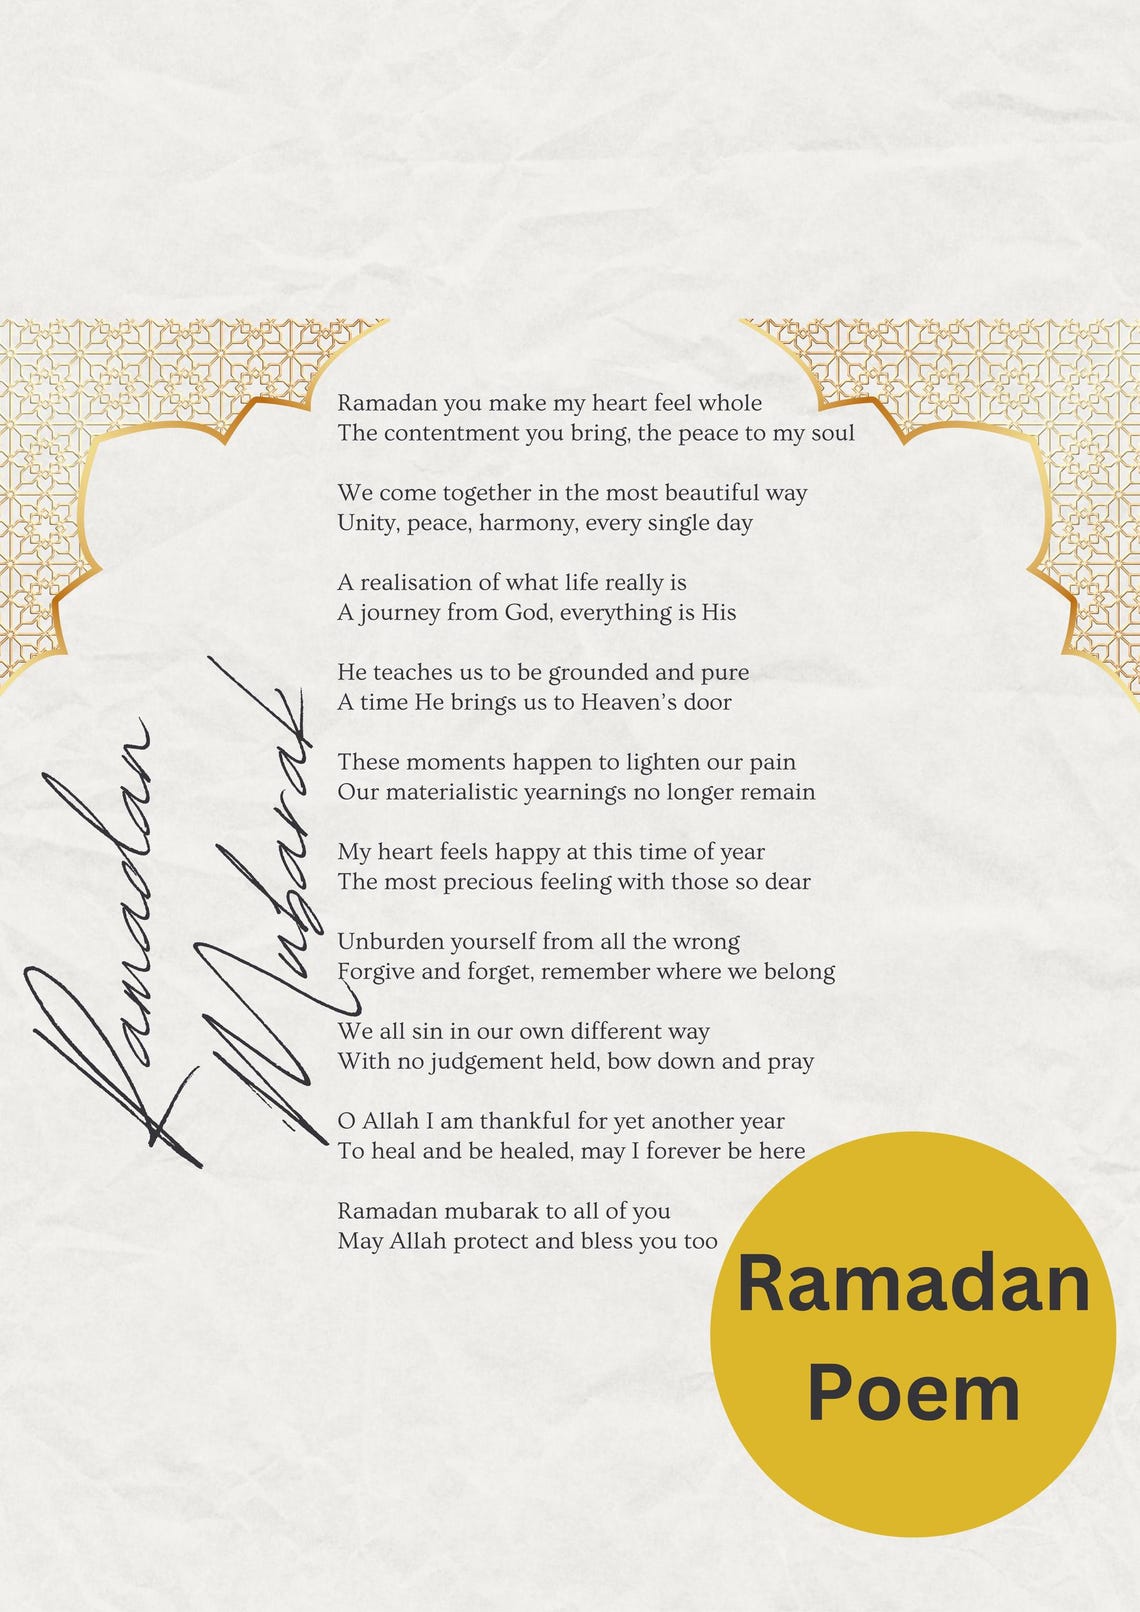 Ramadan you make my heart feel whole
The contentment you bring, the peace to my soul
We come together in the most beautiful way
Unity, peace, harmony, every single day
A realisation of what life really is
A journey from God, everything is His
He teaches us to be grounded and pure
A time He brings us to Heaven’s door
These moments happen to lighten our pain
Our materialistic yearnings no longer remain
My heart feels happy at this time of year
The most precious feeling with those so dear
Unburden yourself from all the wrong
Forgive and forget, remember where we belong
We all sin in our own different way
With no judgement held, bow down and pray
O Allah I am thankful for yet another year
To heal and be healed, may I forever be here
Ramadan mubarak to all of you
May Allah protect and bless you too
Ramadan
Mubarak
Ramadan
Poem